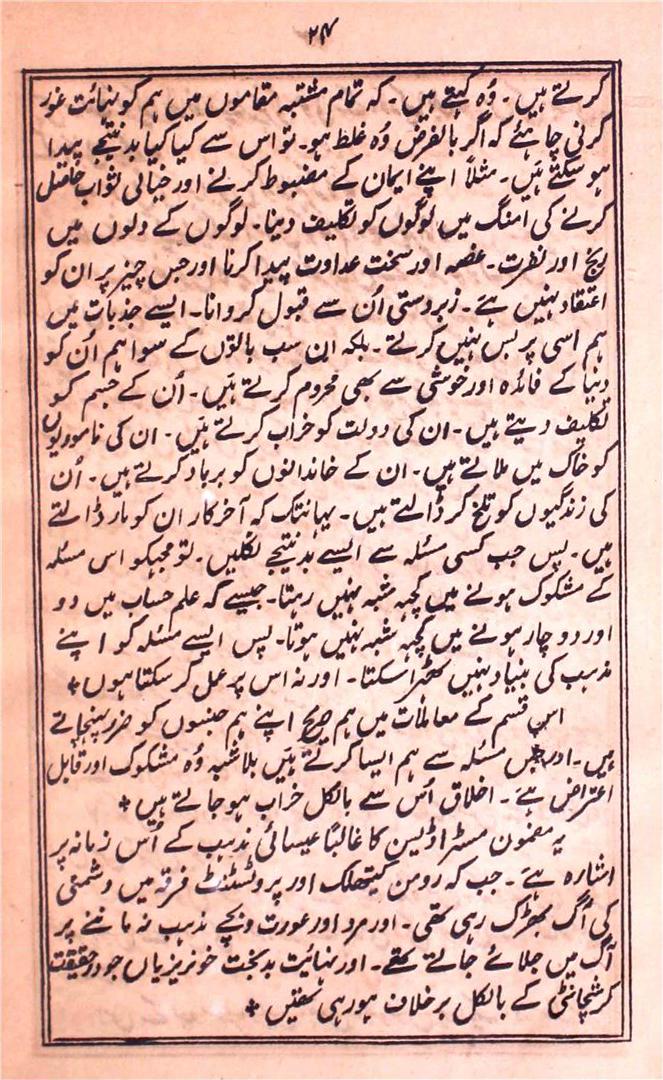 ۲۴
کرتے ہیں۔ وُہ کہتے ہیں۔ کہ تمام مشتبہ مقاموں میں ہم کو نہائت غور
کرنی چاہئے کہ اگر بالفرض وُہ غلط ہو۔ تو اس سے کیا کیا بد نتیجے پیدا
ہو سکتے ہیں۔ مثلاً اپنے ایمان کے مضبوط کرنے اور خیالی ثواب حاصل
کرنے کی امنگ میں لوگوں کو تکلیف دینا۔ لوگوں کے دلوں میں
رنج اور نفرت۔ غصہ اور سخت عداوت پیدا کرنا اور جس چیز پر ان کو
اعتقاد نہیں ہے۔ زبردستی اُن سے قبول کروانا۔ ایسے جذبات میں
ہم اسی پر بس نہیں کرتے۔ بلکہ ان سب باتوں کے سوا ہم اُن کو
دنیا کے فائدہ اور خوشی سے بھی محروم کرتے ہیں۔ اُن کے جسم کو
تکلیف دیتے ہیں۔ ان کی دولت کو خراب کرتے ہیں۔ ان کی ناموریوں
کو خاک میں ملاتے ہیں۔ ان کے خاندانوں کو برباد کرتے ہیں۔ اُن
کی زندگیوں کو تلخ کر ڈالتے ہیں۔ یہانتک کہ آخر کار ان کو مار ڈالتے
ہیں۔ پس جب کسی مسئلہ سے ایسے بد نتیجے نکلیں۔ تو مجہکو اس مسئلہ
کے مشکوک ہونے میں کچہہ شبہ نہیں رہتا۔ جیسے کہ علم حساب میں دو
اور دو چار ہونے میں کچہہ شبہ نہیں ہوتا۔ پس ایسے مسئلہ کو اپنے
مذہب کی بنیاد نہیں ٹھہرا سکتا۔ اور نہ اس پر عمل کر سکتا ہوں*
اس قسم کے معاملات میں ہم صریح اپنے ہم جنسوں کو ضرر پہنچاتے
ہیں۔ اور جس مسئلہ سے ہم ایسا کرتے ہیں بلا شبہ وُہ مشکوک اور قابل
اعتراض ہے۔ اخلاق اُس سے بالکل خراب ہو جاتے ہیں*
یہ مضمون مسٹر اڈیسن کا غالبًا عیسائی مذہب کے اُس زمانہ پر
اشارہ ہے۔ جب کہ رومن کیتھلک اور پروٹسٹنٹ فرقہ میں دشمنی
کی آگ بھڑک رہی تھی۔ اور مرد اور عورت و بچے مذہب نہ ماننے پر
آگ میں جلائے جاتے تھے۔ اور نہائیت بدبخت خونریزیاں جو درحقیقت
کرشچانٹی کے بالکل برخلاف ہو رہی تھیں*